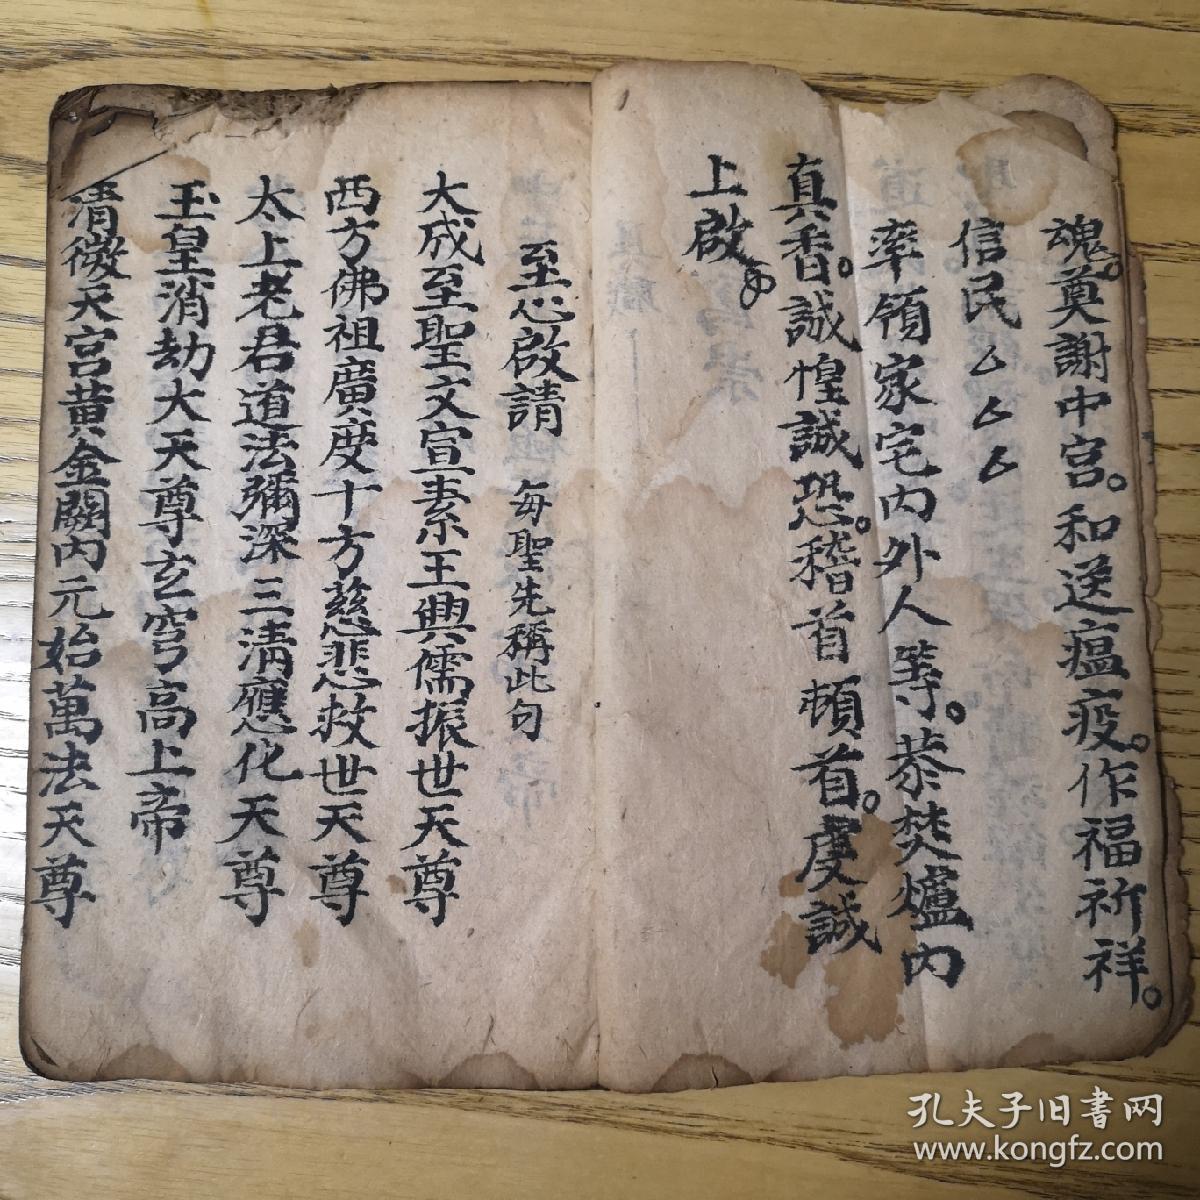 魂。奠謝中宮。和送瘟疫。作福祈祥。
信民厶厶厶
率領家宅內外人等。恭焚爐內
真香。誠惶誠恐。稽首頓首。虔誠
上啟。
至心啟請 每聖先稱此句
大成至聖文宣素王興儒振世天尊
西方佛祖廣度十方慈悲救世天尊
太上老君道法彌深三清應化天尊
玉皇消劫大天尊玄穹高上帝
清微天宮黃金闕內元始萬法天尊
孔夫子旧書网
www.kongfz.com